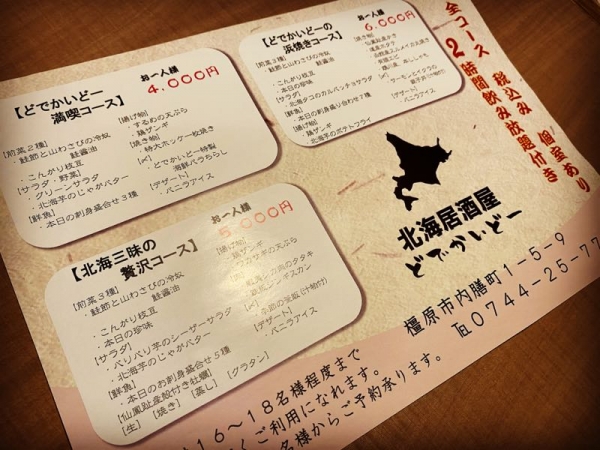 【どでかいどー
満喫コース】
お一人様
4,000円
[前菜2種]
・鮭節と山わさびの冷奴
鮭醤油
・こんがり枝豆
[サラダ・野菜]
・グリーンサラダ
・北海芋のじゃがバター
[鮮魚]
・本日の刺身盛合せ3種
[揚げ物]
・するめの天ぷら
・鶏ザンギ
[焼き物]
・特大ホッケ一枚焼き
[〆]
・どでかいどー特製
海鮮バラちらし
[デザート]
・バニラアイス
【どでかいどーの
浜焼きコース】
お一人様
6,000円
[前菜3種]
・鮭節と山わさびの冷奴
鮭醤油
・こんがり枝豆
・本日の珍味
[サラダ]
・北海タコのカルパッチョサラダ
[鮮魚]
・本日のお刺身盛り合わせ7種
[揚げ物]
・鶏ザンギ
・北海芋のポテトフライ
[〆]
・サーモンとイクラの
[デザート]
・バニラアイス
全コース 税込み 個室あり
2時間飲み放題付き
【北海三昧の
贅沢コース】
お一人様
5,000円
[前菜3種]
・鮭節と山わさびの冷奴
鮭醤油
・こんがり枝豆
・本日の珍味
[サラダ]
・パリパリ芋のシーザーサラダ
・北海芋のじゃがバター
[鮮魚]
・本日のお刺身盛合せ5種
[仙鳳趾産殻付き牡蠣]
[生] [焼き] [蒸し] [グラタン]
[揚げ物]
・鶏ザンギ
[〆]
・季節の釜飯(汁物付)
[デザート]
・バニラアイス
北海居酒屋
どでかいどー
橿原市内膳町1-5-9
℡0744-25-77
16〜18名様程度まで
くご利用になれます。
名様からご予約承ります。